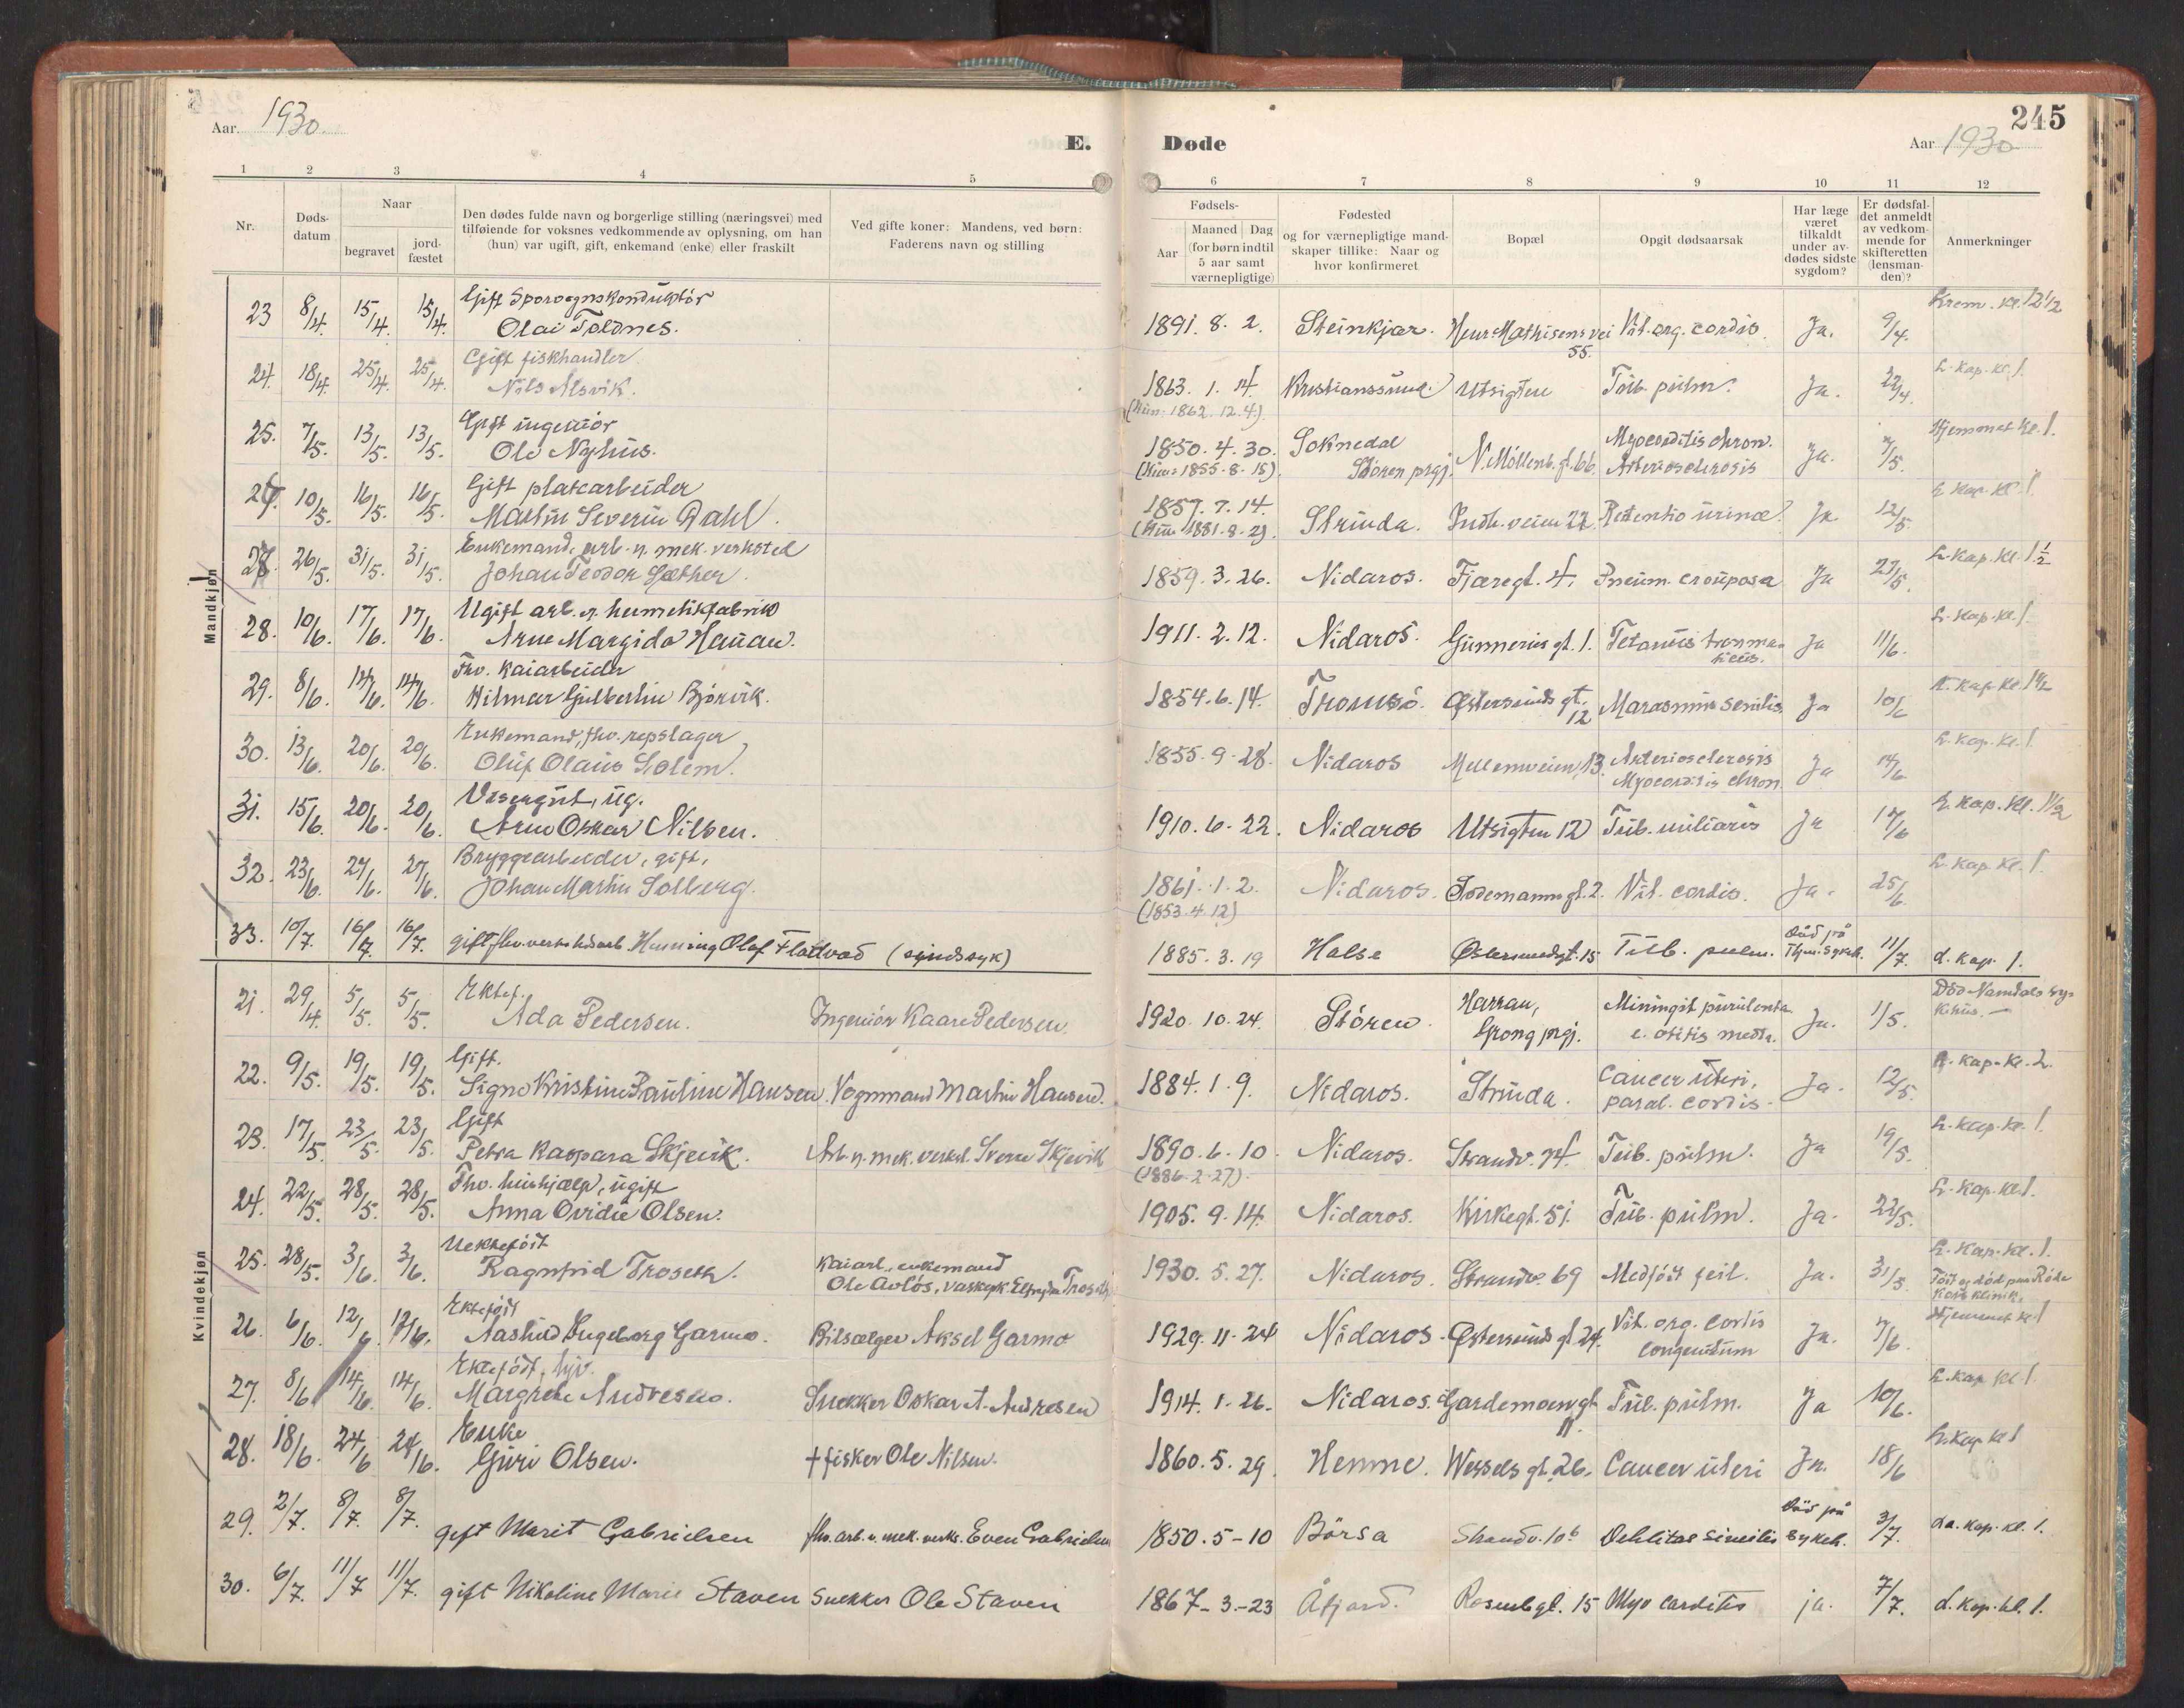 Aar. 1930.
E. Døde
245
Aar 1930
1 2 3 4 5 6 7 8 9 10 11 12
Nr.
Døds-
datum
Naar
begravet
jord-
fæstet
Den dødes fulde navn og borgerlige stilling (næringsvei) med
tilføiende for voksnes vedkommende av oplysning, om han
(hun) var ugift, gift, enkemand (enke) eller fraskilt
Ved gifte koner: Mandens, ved børn:
Faderens navn og stilling
Fødsels-
Aar
Maaned Dag
(for børn indtil
5 aar samt
værnepligtige)
Fødested
og for værnepligtige mand-
skaper tillike: Naar og
hvor konfirmeret
Bopæl
Opgit dødsaarsak
Har læge
været
tilkaldt
under av-
dødes sidste
sygdom?
Er dødsfal-
det anmeldt
av vedkom-
mende for
skifteretten
(lensman-
den)?
Anmerkninger
Mandkjøn
Gift Sporvognskonduktör Krem. kl. 12½
23 8/4. 15/4. 15/4. Olai Foldnes. 1891. 8. 2. Steinkjær. Henr. Mathisens vei 55. Vit. org. cordis. Ja. 9/4.
Gift fiskhandler L. kap. kl. 1.
24. 18/4. 25/4. 25/4. Nils Alsvik. 1863. 1. 14. Kristianssund. Utsigten Tub. pulm. Ja. 22/4.
(1862. 12. 4).
Gift ingeniör Hjemmet kl. 1.
25. 7/5. 13/5. 13/5. Ole Nyhus. 1850. 4. 30. Soknedal Stören prgj. N. Möllenb. gt. 66. Myocarditis chron. Arteriosclerosis Ja. 7/5.
(1855. 8. 15).
Gift platearbeider L. kap. kl. 1.
26. 10/5. 16/5. 16/5. Martin Severin Dahl. 1857. 7. 14. Strinda. Indh. veien 22. Retentio urinæ. Ja 12/5.
(1881. 8. 2).
Enkemand, arb. v. mek. verksted L. kap. kl. 1½
27. 26/5. 31/5. 31/5. Johan Teodor Sæther. 1859. 3. 26. Nidaros. Fjæregt. 4. Pneum. crouposa Ja 27/5.
Ugift arb. v. hermetikfabrik L. kap. kl. 1.
28. 10/6. 17/6. 17/6. Arne Margido Hauan. 1911. 2. 12. Nidaros. Gunnerus gt. 1. Tetanus traumaticus. Ja 11/6.
Fhv. kaiarbeider kap. kl. 1½
29. 8/6. 14/6. 14/6. Hilmar Gjulbertin Björvik. 1854. 6. 14. Tromsö. Østersunds gt. 12 Marasmus senilis. Ja 10/6
Enkemand, fhv. repslager L. kap. kl. 1.
30. 13/6. 20/6. 20/6. Oluf Olaus Solem. 1855. 9. 28. Nidaros Mellemveien 13. Arteriosclerosis Myocarditis chron. Ja 14/6
Visergut, ug. L. kap. kl. 1½
31. 15/6. 20/6. 20/6. Arne Oskar Nilsen. 1910. 6. 22. Nidaros Utsigten 12 Tub. miliaris Ja 17/6
Bryggearbeider, gift, L. kap. kl. 1.
32. 23/6. 27/6. 27/6. Johan Martin Solberg. 1861. 1. 2. Nidaros. Sodemanns gt. 2. Vit. cordis. Ja. 25/6.
(1853. 4. 12)
33. 10/7. 16/7. 16/7. gift fhv. verkstedarb Henning Olaf Flatvad (sindssyk) 1885. 3. 19 Halse Østersundsgt. 15 Tub. pulm. Död på Thjm. sykeh. 11/7. L. kap. 1.
Kvindekjøn
Ektef. Död Namdals sy-
21. 29/4. 5/5. 5/5. Ada Pedersen. Ingeniör Kaare Pedersen. 1920. 10. 24. Stören. Harran, Grong prgj. Miningit purulenta e. otitis media. Ja. 1/5. kehus.
Gift. kap. kl. 2.
22. 9/5. 19/5. 19/5. Signe Kristine Pauline Hansen. Vognmand Martin Hansen. 1884. 1. 9. Nidaros. Strinda. Cancer uteri, paral. cordis. Ja. 12/5.
Gift L. kap. kl. 1.
23. 17/5. 23/5. 23/5. Petra Kaspara Skjevik. Arb. v. mek. verkst. Sverre Skjevik 1890. 6. 10. Nidaros. Strandv. 74. Tub. pulm. Ja 19/5.
(1886. 2. 27).
Fhv. hushjælp, ugift L. kap. kl. 1.
24. 22/5. 28/5. 28/5. Anna Ovidie Olsen. 1905. 9. 14. Nidaros. Kirkegt. 51. Tub. pulm. Ja. 22/5.
Uektefödt L. kap. kl. 1.
25. 28/5. 3/6. 3/6. Ragnfrid Troseth. Kaiarb., enkemand Ole Avlös, vaskepk. Troseth 1930. 5. 27. Nidaros. Strandv. 69 Medfödt feil. Ja. 31/5. Födt og död paa Röde Kors klinik.
Ektefödt Hjemmet kl 1
26. 6/6. 12/6. 12/6. Aashild Ingeborg Garmo. Bilsælger Aksel Garmo 1929. 11. 24 Nidaros. Østersunds gt. 24. Vit. org. cordis congenitum Ja. 7/6.
Ektefödt, hjv. L. kap kl. 1.
27. 8/6 14/6. 14/6. Margrete Andresen. Snekker Oskar A. Andresen 1914. 1. 26. Nidaros. Gardemoens gt 11. Tub. pulm. Ja 10/6.
Enke L. kap kl 1
28. 18/6. 24/6 24/6. Guri Olsen. † fisker Ole Nilsen. 1860. 5. 29. Hemne. Wessels gt. 26. Cancer uteri Ja. 18/6
29. 2/7. 8/7. 8/7. gift Marit Gabrielsen fhv. arb. v. mek. verks. Even Gabrielsen 1850. 5-10 Börsa Strandv. 10b Debilitas sinilis Död på sykeh. 3/7. La. kap. kl. 1.
30. 6/7. 11/7 11/7. gift Nikoline Marie Staven Snekker Ole Staven 1867-3-23 Åfjord. Rosenbgt. 15 Myocarditis ja. 7/7. L. kap. kl. 1.